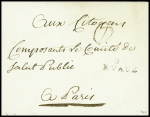 Aux Citoyens
Composants le Comité de
Salut Public
A Paris